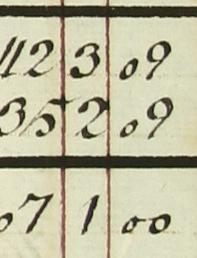 112 3 09
35 2 09
07 1 00